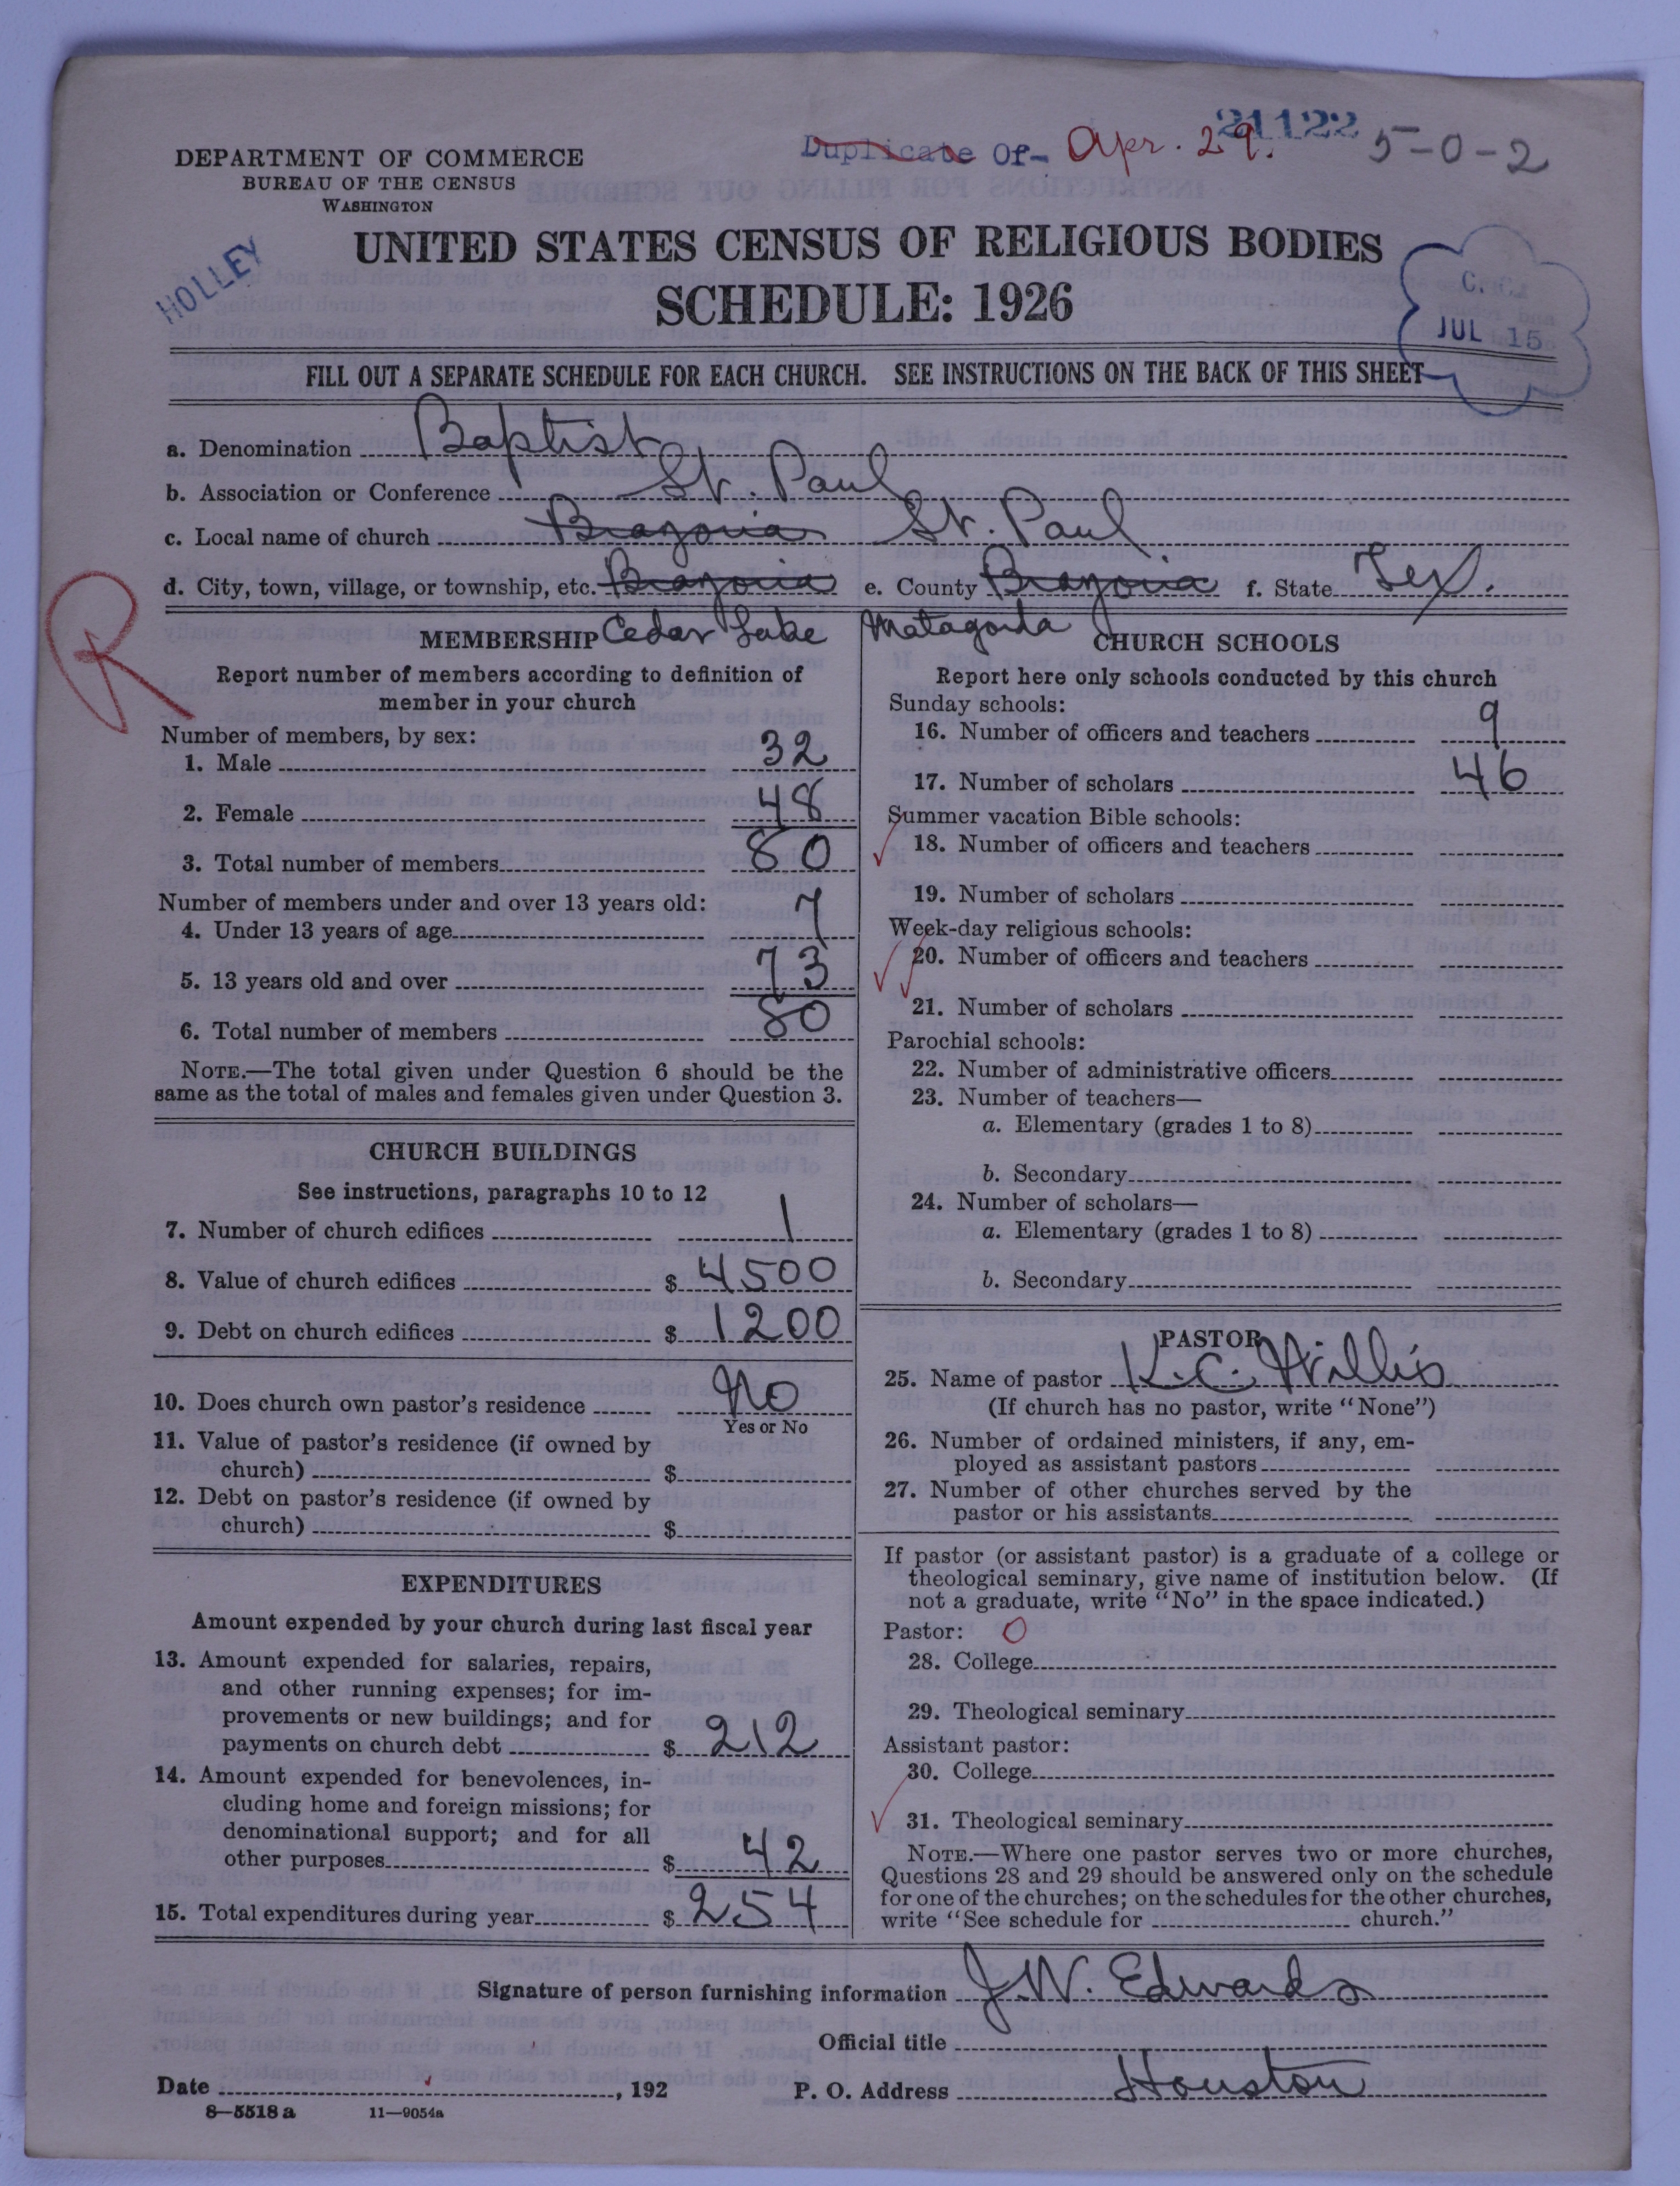 21122
Duplicate Of- Apr. 29. 5-0-2
DEPARTMENT OF COMMERCE
BUREAU OF THE CENSUS
WASHINGTON
HOLLEY
UNITED STATES CENSUS OF RELIGIOUS BODIES
SCHEDULE: 1926
JUL 15
FILL OUT A SEPARATE SCHEDULE FOR EACH CHURCH. SEE INSTRUCTIONS ON THE BACK OF THIS SHEET
a. Denomination Baptist
b. Association or Conference St. Paul
c. Local name of church Brazoria St. Paul
d. City, town, village, or township, etc. Brazoria e. County Brazoria f. State Tex.
R
MEMBERSHIP Cedar Lake
Report number of members according to definition of
member in your church
Number of members, by sex:
1. Male 32
2. Female 48
3. Total number of members 80
Number of members under and over 13 years old:
4. Under 13 years of age 7
5. 13 years old and over 73
6. Total number of members 80
NOTE.—The total given under Question 6 should be the
same as the total of males and females given under Question 3.
CHURCH BUILDINGS
See instructions, paragraphs 10 to 12
7. Number of church edifices 1
8. Value of church edifices $ 4500
9. Debt on church edifices $ 1200
10. Does church own pastor's residence No
Yes or No
11. Value of pastor's residence (if owned by
church) $
12. Debt on pastor's residence (if owned by
church) $
EXPENDITURES
Amount expended by your church during last fiscal year
13. Amount expended for salaries, repairs,
and other running expenses; for im-
provements or new buildings; and for
payments on church debt $ 212
14. Amount expended for benevolences, in-
cluding home and foreign missions; for
denominational support; and for all
other purposes $ 42
15. Total expenditures during year $ 254
Matagorda CHURCH SCHOOLS
Report here only schools conducted by this church
Sunday schools:
16. Number of officers and teachers 9
17. Number of scholars 46
Summer vacation Bible schools:
18. Number of officers and teachers
19. Number of scholars
Week-day religious schools:
20. Number of officers and teachers
21. Number of scholars
Parochial schools:
22. Number of administrative officers
23. Number of teachers—
a. Elementary (grades 1 to 8)
b. Secondary
24. Number of scholars—
a. Elementary (grades 1 to 8)
b. Secondary
PASTOR
25. Name of pastor K.C. Willis
(If church has no pastor, write "None")
26. Number of ordained ministers, if any, em-
ployed as assistant pastors
27. Number of other churches served by the
pastor or his assistants
If pastor (or assistant pastor) is a graduate of a college or
theological seminary, give name of institution below. (If
not a graduate, write "No" in the space indicated.)
Pastor: 0
28. College
29. Theological seminary
Assistant pastor:
30. College
31. Theological seminary
NOTE.—Where one pastor serves two or more churches,
Questions 28 and 29 should be answered only on the schedule
for one of the churches; on the schedules for the other churches,
write "See schedule for church."
Signature of person furnishing information J.W. Edwards
Official title
Date , 192 P. O. Address Houston
8—5518 a 11—9054a